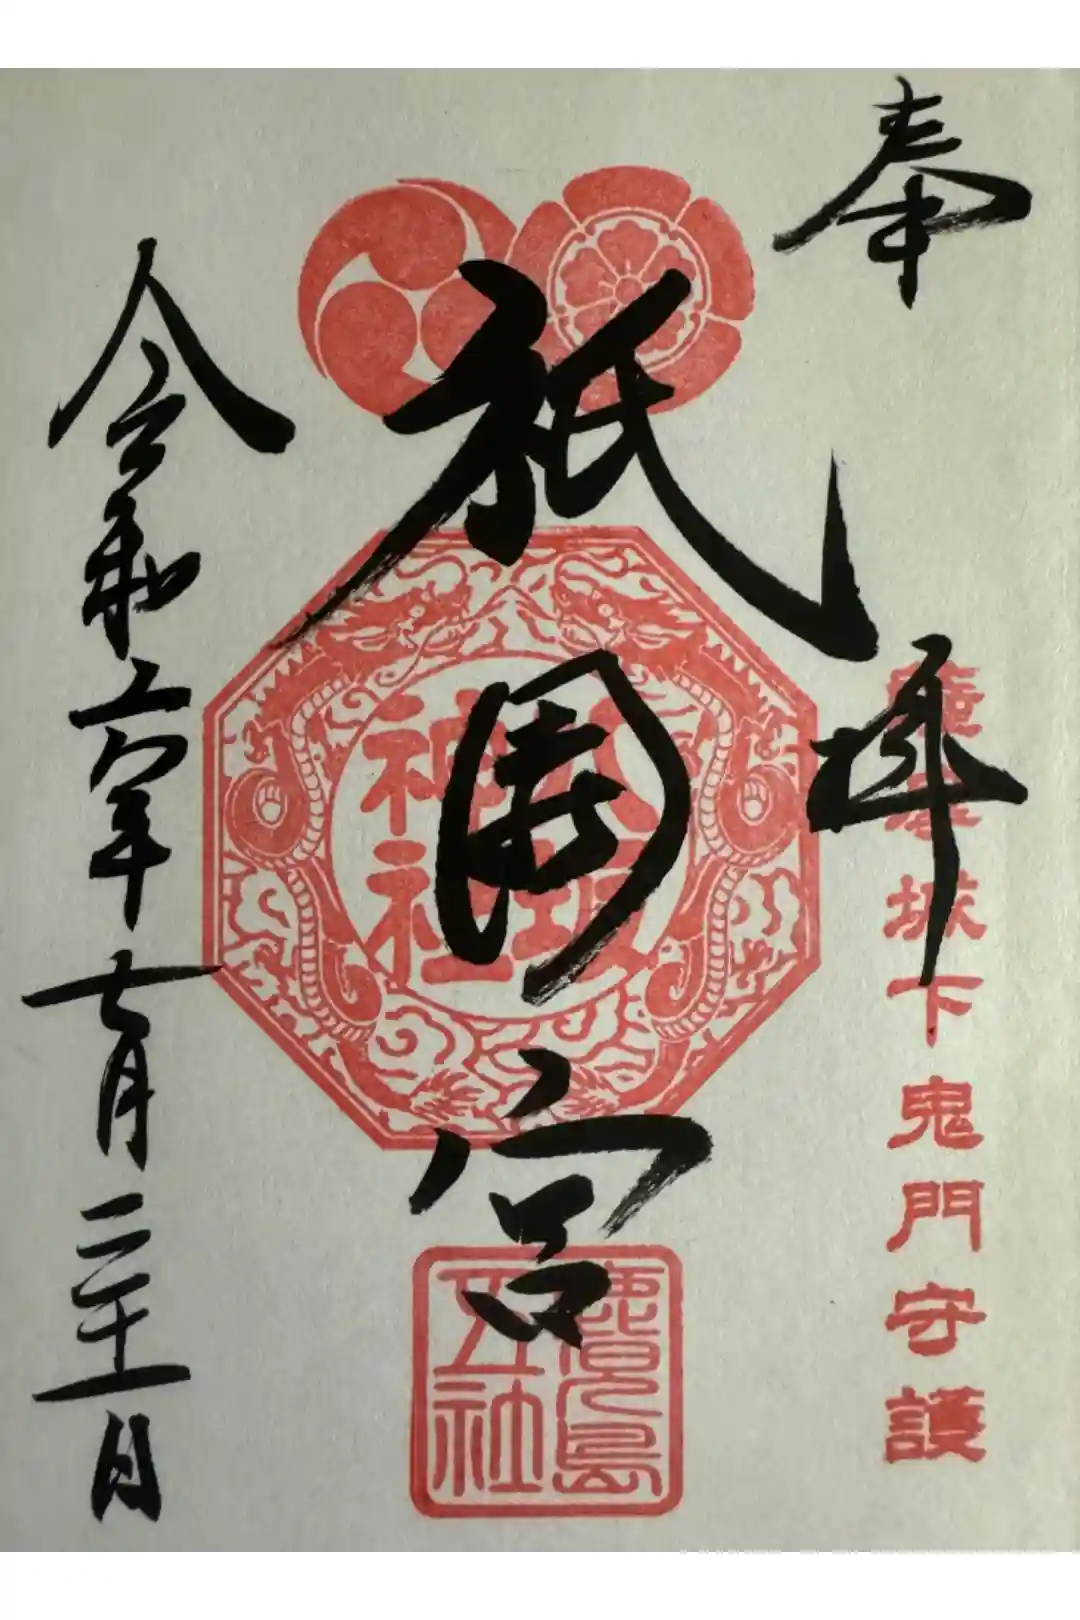 奉拝
城下鬼門守護
祇園宮
八坂
神社
鹿兒島
五社
令和六年七月二十一日